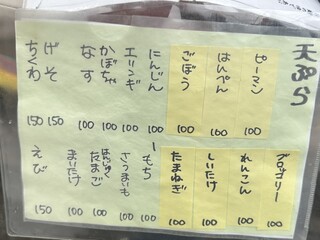 天ぷら
ピーマン 100
はんぺん 100
ごぼう 100
にんじん 100
エリンギ 100
かぼちゃ 100
なす 100
げそ 150
ちくわ 150
ブロッコリー 100
れんこん 100
しいたけ 100
たまねぎ 100
もち 100
さつまいも 100
はんじゅくたまご 100
まいたけ 100
えび 150